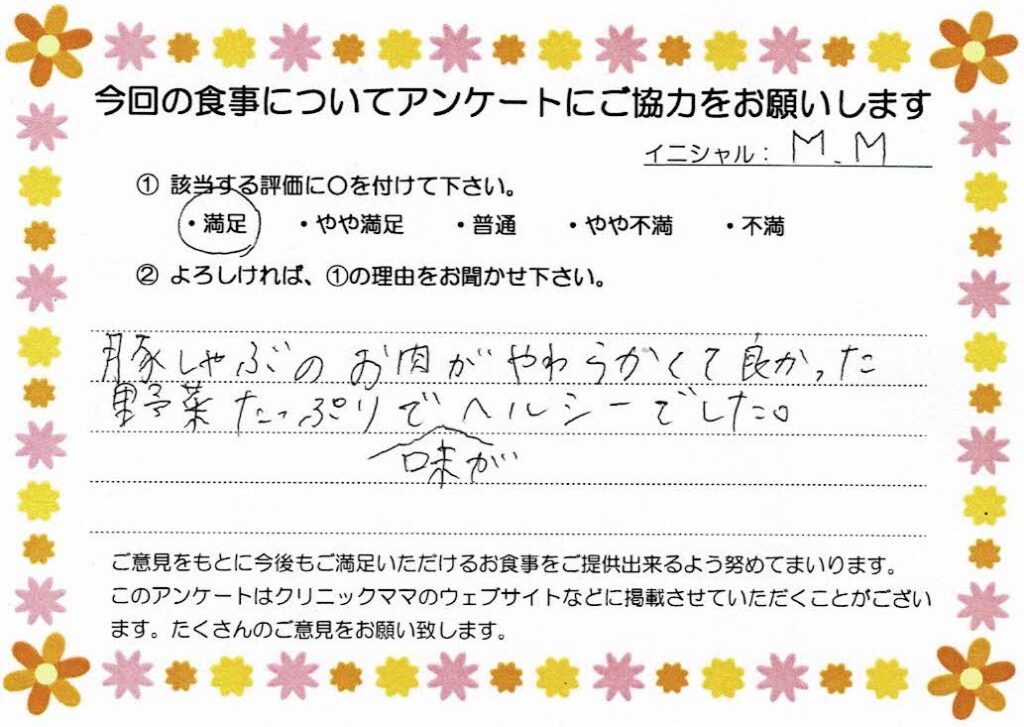 今回の食事についてアンケートにご協力をお願いします
イニシャル： M.M
① 該当する評価に〇を付けて下さい。
・満足 ・やや満足 ・普通 ・やや不満 ・不満
② よろしければ、①の理由をお聞かせ下さい。
豚しゃぶのお肉がやわらかくて良かった
野菜たっぷりでヘルシーでした。
味が
ご意見をもとに今後もご満足いただけるお食事をご提供出来るよう努めてまいります。
このアンケートはクリニックママのウェブサイトなどに掲載させていただくことがござい
ます。たくさんのご意見をお願い致します。